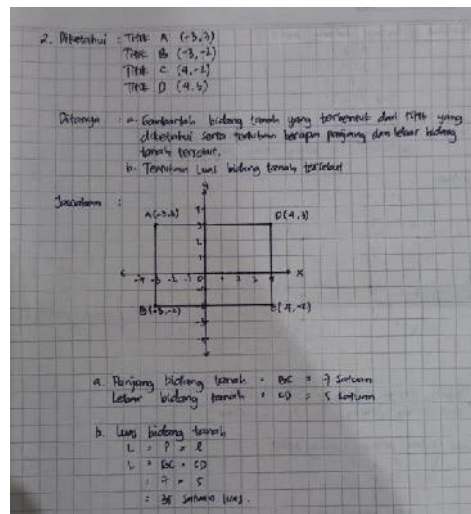 2. Diketahui : Titik A (-3,3)
Titik B (-3,-2)
Titik C (4,-2)
Titik D (4,3)
Ditanya : a. Gambarlah bidang tanah yang terbentuk dari titik yang
diketahui serta tentukan berapa panjang dan lebar bidang
tanah tersebut.
b. Tentukan luas bidang tanah tersebut
Jawaban :
y
A(-3,3) D(4,3)
x
B(-3,-2) C(4,-2)
a. Panjang bidang tanah = BC = 7 satuan
Lebar bidang tanah = CD = 5 satuan
b. Luas bidang tanah
L = P × l
L = BC × CD
= 7 × 5
= 35 satuan luas.